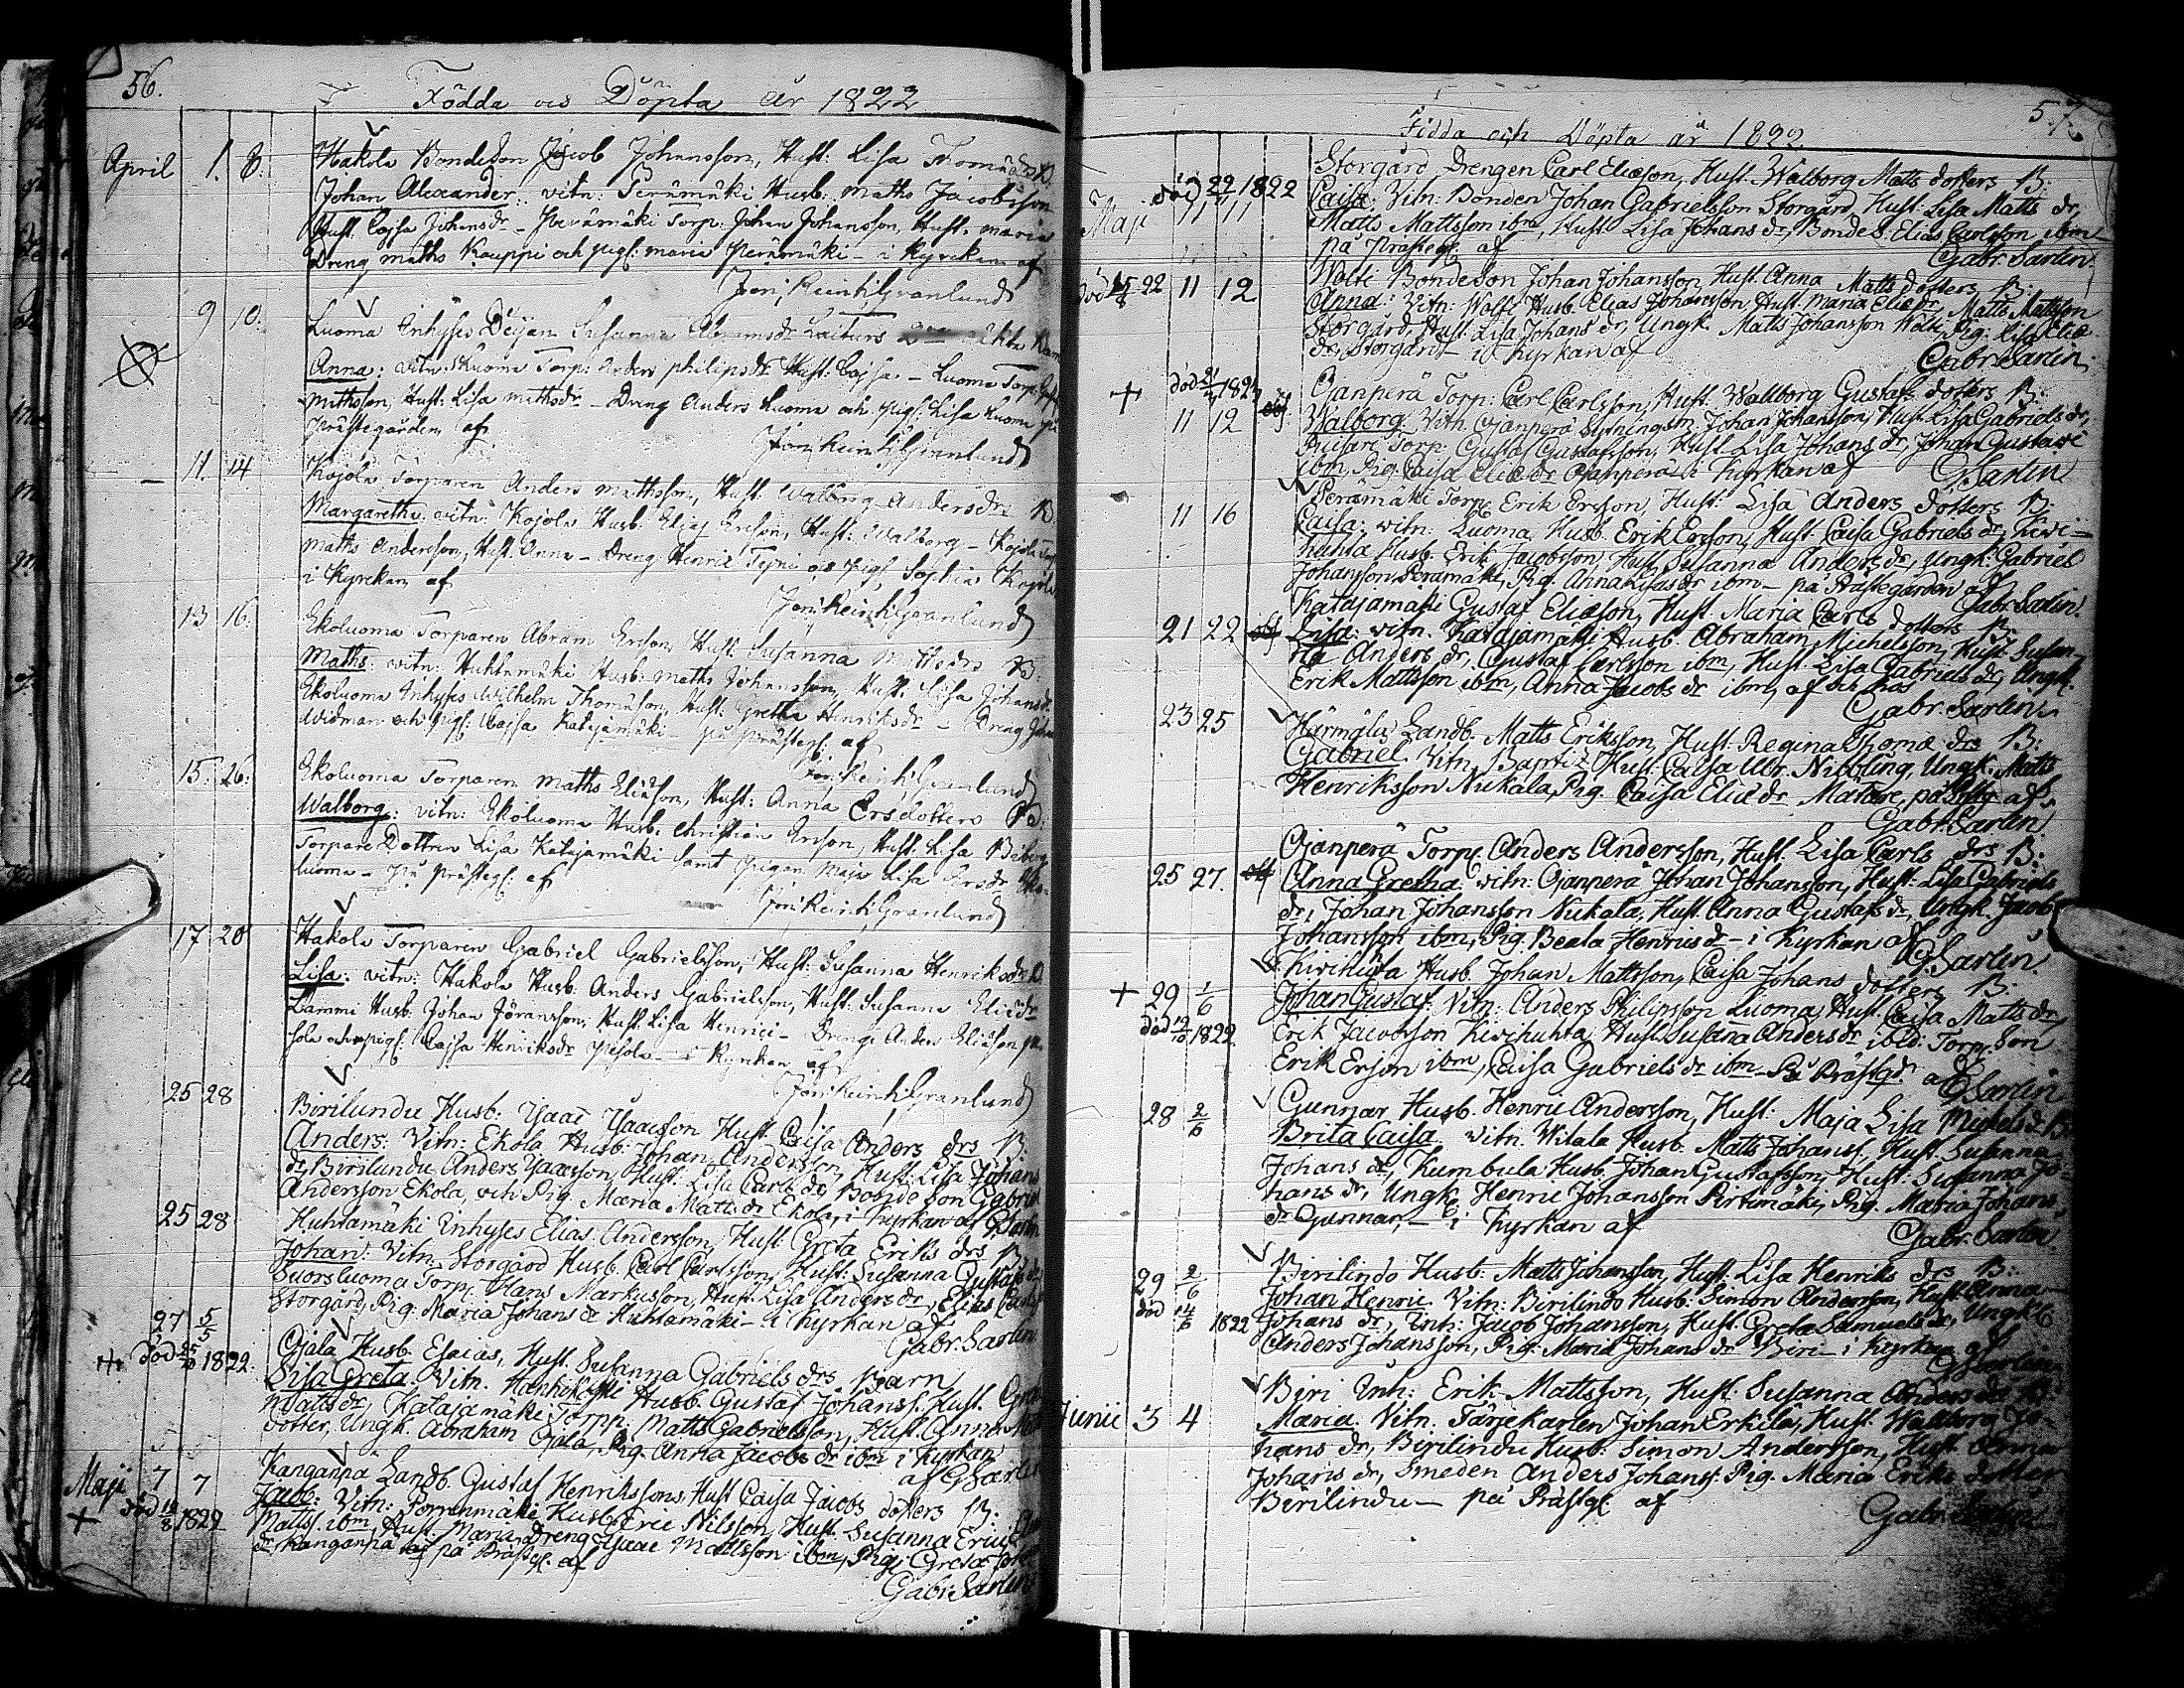 56.
Födda och Döpta år 1822
April 1. 8. Hakola Bondeson Jacob Johansson, Hust: Lisa Thomædrs B.
Johan Alexander: vitn: Perämäki Husb: Maths Jacobsson
Hust: Cajsa Johansdr - Perämäki Torp: Johan Johansson, Hust: Maria
Dreng Maths Kauppi och pig: Maria Perämäki - i Kyrckan af
Jon: Reinh: Granlund
9 10. Luoma Inhyses Deijan Susanna Abramsdr
Anna: vitn: Luoma Torp: Anders Philipsdr Hust: Cajsa - Luoma Torp:
Mithsson, Hust: Lisa Mithsdr - Dreng Anders Luoma och pig: Lisa Luoma
Prästegården af
Jon: Reinh: Granlund
11. 14 Kojola Torparen Anders Mathsson, Hust: Walborg Andersdrs B.
Margaretha: vitn: Kojola Husb: Elias Ersson, Hust: Walborg - Kojola Torp
Maths Andersson, Hust: Anna - Dreng Henric och pig: Sophia Kojola
i Kyrckan af
Jon: Reinh: Granlund
13 16. Ekoluoma Torparen Abram Ersson, Hust: Susanna Mathsdrs B:
Maths: vitn: Huhtamäki Husb: Maths Johansson, Hust: Lisa Johansdr
Ekoluoma Inhyses Wilhelm Thomasson, Hust: Gretha Henriksdr - Dreng Johan
Widman och pig: Cajsa Katajamäki - på Prästeg: af
Jon: Reinh: Granlund
15. 26. Ekoluoma Torparen Maths Eliæson, Hust: Anna Ersdotters B:
Walborg: vitn: Ekoluoma Husb: Christian Ersson, Hust: Lisa
Torpare Dottren Lisa Katajamäki samt pigan Maja Lisa Ersdr Eko-
luoma - på Prästeg: af
Jon: Reinh: Granlund
17 20 Hakola Torparen Gabriel Gabrielsson, Hust: Susanna Henriksdrs B
Lisa: vitn: Hakola Husb: Anders Gabrielsson, Hust: Susanna Eliædr
Lammi Husb: Johan Jöransson, Hust: Lisa Henrici - Dreng Anders Eliæson
och pig: Cajsa Henriksdr - i Kyrckan af
Jon: Reinh: Granlund
25 28 Birilundu Husb: Isaac Isaacsson Hust Caisa Anders drs B:
Anders: Vitn: Ekola Husb: Johan Andersson, Hust: Lisa Johans
dr, Birilundu Anders Isacsson, Hust: Lisa Carls dr, Bonde son Gabriel
Andersson Ekola, och Pig. Maria Matts dr Ekola, i Kyrkan af Sarlin
25 28 Huhtamäki Inhyses Elias Andersson, Hust Greta Eriks drs B
Johan: Vitn. Storgård Husb. Carl Carlsson, Hust: Susanna Gustafs dr
Suorsluoma Torp: Hans Markusson, Hust. Lisa Anders dr, Elias Carls
Storgård, Pig: Maria Johans dr Huhtamäki - i Kyrkan af
Gabr. Sarlin
27 5/5 Ojala Husb. Esaias, Hust. Susanna Gabriels drs Barn
död 1822. Lisa Greta. Vitn. Husb. Gustaf Johanss. Hust.
Matts dr, Katajamäki Torpp: Matts Gabrielsson, Hust. Anna
dotter, Ungk. Abraham Ojala, Pig. Anna Jacobs dr ibm i Kyrkan
af G Sarlin
Maji 7 7 Kanganpä Landb. Gustaf Henrikssons Hust Caisa Jacobs dotters B:
+ död 19/8 1822 Jacob: Vitn: Husb: Eric Nilsson, Hust. Susanna
Matts. ibm, Hust. Maria, Dreng Isaac Mattsson ibm, Pig: Greta
dr, Kanganpä på Prästg: af
Gabr: Sarlin
57.
Födda och Döpta år 1822
Storgård Drengen Carl Eliæson, Hust. Walborg Matts dotters B:
Maji död 22 1822 Caisa: Vitn: Bonden Johan Gabrielsson Storgård, Hust: Lisa Matts dr,
11 11 Matts Mattsson ibm, Hust Lisa Johans dr, Bonde S. Elias Carlsson ibm
på Prästeg. af
Gabr. Sarlin.
Wolti Bondeson Johan Johansson, Hust. Anna Matts dotters B:
död 22 11 12 Anna: Vitn: Wolti Husb. Elias Johansson, Hust. Maria Eliædr, Matts Mattsson
Storgård, Hust. Lisa Johans dr, Ungk. Matts Johansson Wolti, Pig: Lisa Eliæ
dr, Storgård - i Kyrkan af
Gabr. Sarlin.
+ död Ojanperä Torp: Carl Carlsson, Hust. Wallborg Gustafs dotters B:
11 12 Walborg. Vitn. Ojanperä Sytningsm. Johan Johansson, Hust. Lisa Gabriels dr,
Torp. Gustaf Gustafsson, Hust Lisa Johans dr, Johan Gustavi
ibm, Pig. Caisa Eliæ dr Ojanperä - i Kyrkan af G. Sarlin
Perämäki Torp. Erik Ersson, Hust: Lisa Anders dotters B:
11 16 Caisa: vitn: Luoma Husb. Erik Ersson, Hust. Caisa Gabriels dr, Kivi-
huhta Husb. Erik Jacobsson, Hust Susanna Anders dr, Ungk: Gabriel
Johansson Perämäki, Pig. Anna ibm - på Prästegården af
Gabr. Sarlin.
Katajamäki Gustaf Eliæson, Hust Maria Carls dotters B:
21 22 Lisa: vitn. Katajamäki Husb. Abraham Michelsson, Hust Susan-
na Anders dr, Gustaf Carlsson ibm, Hust. Lisa Gabriels dr, Ungk.
Erik Mattsson ibm, Anna Jacobs dr ibm, af och hos
Gabr. Sarlin.
23 25 Härmälä Landb. Matts Eriksson, Hust. Regina Thomæ drs B:
Gabriel. Vitn. Hust. Caisa Ulr. Nibbling, Ungk. Matts
Henriksson Nukala, Pig. Caisa Eliæ dr Matare, på af
Gabr. Sarlin.
Ojanperä Torp. Anders Andersson, Hust. Lisa Carls drs B:
25 27. Anna Gretha. vitn: Ojanperä Johan Johansson, Hust: Lisa Gabriels
dr, Johan Johansson Nukala, Hust. Anna Gustafs dr, Ungk. Jacob
Johansson ibm, Pig. Beata Henrics dr - i Kyrkan af
G. Sarlin.
Kivihuhta Husb. Johan Mattsson, Caisa Johans dotters B:
+ 29 1/6 Johan Gustaf. Vitn: Anders Philipsson Luoma, Hust. Caisa Matts dr,
död 19/10 1822. Erik Jacobsson Kivihuhta, Hust Susana Anders dr ibd: Torp. Son
Erik Erson ibm, Caisa Gabriels dr ibm. På Prästgd. af
G Sarlin
28 2/6 Gunnar Husb. Henric Andersson, Hust: Maja Lisa Michels dr B
Brita Caisa. vitn. Witala Husb. Matts Johanss. Hust. Susanna
Johans dr, Kumbula Husb. Johan Gustafsson, Hust: Susanna Jo-
hans dr, Ungk. Henric Johansson Pertimäki, Pig. Maria Johans
dr Gunnar, - i Kyrkan af
Gabr. Sarlin.
29 2/6 Birilindo Husb: Matts Johansson, Hust. Lisa Henriks drs B:
död 14/6 1822 Johan Henric. Vitn: Birilindo Husb: Simon Andersson, Hust. Anna
Johans dr, Inh: Jacob Johansson, Hust. Greta Samuels dr, Ungk
Anders Johansson, Pig: Maria Johans dr Biri - i Kyrkan af
G Sarlin
Biri Inh: Erik Mattsson, Hust. Susanna Anders drs B:
Junii 3 4 Maria. Vitn. Färjekarlen Johan Erkilä, Hust. Walborg Jo-
hans dr, Birilindu Husb: Simon Andersson, Hust. Anna
Johans dr, Smeden Anders Johanss. Pig. Maria Eriks dotter
Birilindu - på Prästg: af
Gabr. Sarlin